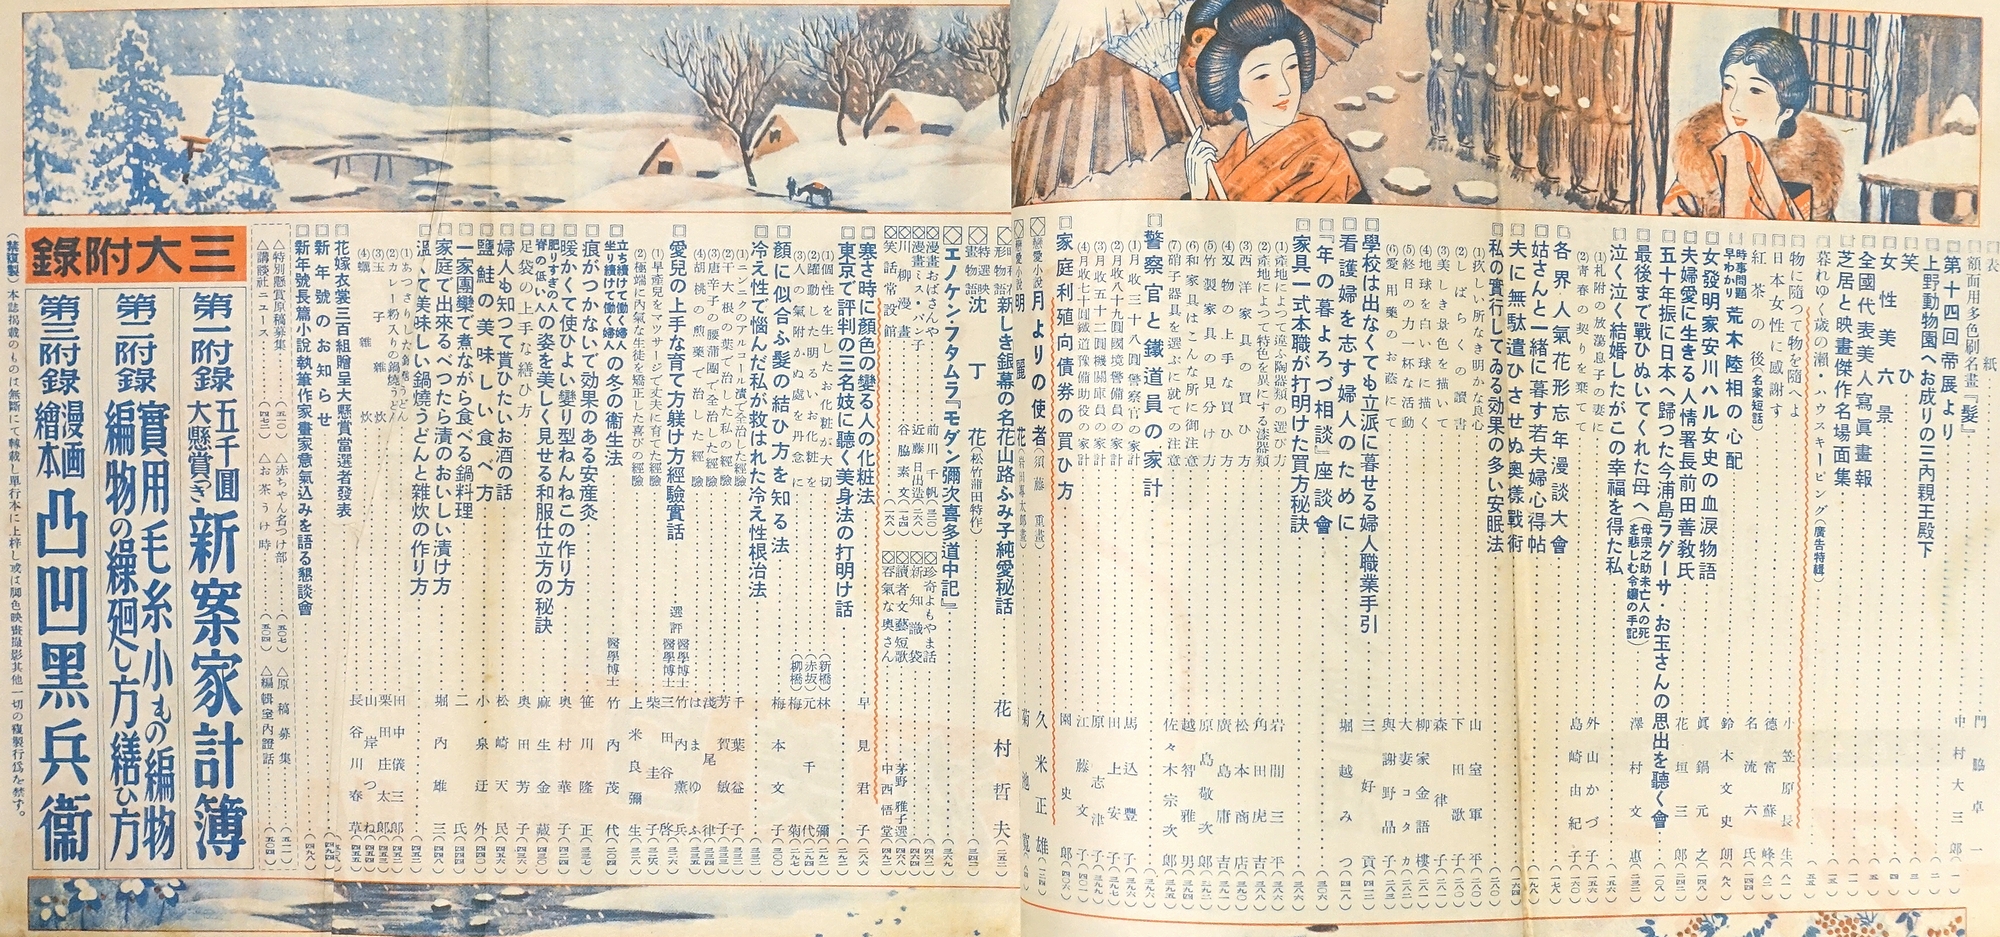 表紙 門脇卓一
額面用多色刷名畫『髪』 中村大三郎
第十四回帝展より
上野動物園へお成りの三内親王殿下
笑ひ
女性美六景
全國代表美人寫眞畫報
芝居と映畫傑作名場面集
暮れゆく歳の瀬・ハウスキーピング(廣告特輯)
物に隨つて物を隨へよ 小笠原長生
日本女性に感謝す 德富蘇峰
紅茶の後(名家短話) 名流六氏
時事問題早わかり 荒木陸相の心配 鈴木文史朗
女發明家安川ハル女史の血淚物語 眞鍋元之
夫婦愛に生きる人情署長前田善敎氏 花垣三郎
五十年振に日本へ歸つた今浦島ラグーサ・お玉さんの思出を聽く會
最後まで戰ひぬいてくれた母へ(母宗之助未亡人の死を悲しむ令孃の手記) 澤村文惠
泣く泣く結婚したがこの幸福を得た私
(1)札附の放蕩息子の妻に 外山かづ子
(2)靑春の契りを棄て 島崎由紀子
各界人氣花形忘年漫談大會
姑さんと一緒に暮す若夫婦心得帖
夫に無駄遣ひさせぬ奧樣戰術
私の實行してゐる効果の多い安眠法
(1)疚しい所なき明かな良心 山室軍平
(2)しばらくの讀書 下田歌子
(3)美しき景色を描いて 森律子
(4)地球を白い球に描く 柳家金語樓
(5)終日の力一杯な活動 大妻コタカ
(6)愛用の藥のお蔭にて 與謝野晶子
學校は出なくても立派に暮せる婦人職業手引 三好貢
看護婦を志す婦人のために 堀越みつ
『年の暮よろづ相談』座談會
家具一式本職が打明けた買方秘訣
(1)產地によつて違ふ陶器類の選び方 岩間三平
(2)產地によつて特色を異にする漆器類 角田虎八
(3)西洋家具の買ひ方 松本商店
(4)刄物の上手な買ひ方 廣島庸吉
(5)竹製家具の見分け方 原島敬次郎
(6)和家具はこんな所に御注意 越智雅男
(7)硝子器具を選ぶに就ての注意 佐々木宗次郎
警察官と鐵道員の家計
(1)月收三十八圓警察官の家計 馬込豐子
(2)月收八十九圓國境警備員の家計 田上安子
(3)月收五十二圓機關庫員の家計 原志津
(4)月收七十圓鐵道豫備助役の家計 江藤文子
家庭利殖向債券の買ひ方 園史郎
戀愛小說 月よりの使者(須藤重畫) 久米正雄
戀愛小說 明麗花(岩田專太郎畫) 菊池寬
形物語 新しき銀幕の名花山路ふみ子純愛秘話 花村哲夫
特選映畫物語 沈丁花(松竹蒲田特作)
エノケン・フタムラ『モダン彌次喜多道中記』
漫畫おばさんや 前川千帆
漫畫ミス・パン子 近藤日出造
川柳漫畫 谷脇素文
笑話常設館
珍奇よもやま話
新知識袋
讀者文藝短歌 茅野雅子選
吞氣な奧さん 中西悟堂
寒さ時に顏色の變る人の化粧法 早見君子
東京で評判の三名妓に聽く美身法の打明け話
(1)個性を生したお化粧が大切 (新橋)林彌
(2)躍動した明るいお化粧を (赤坂)元千代
(3)人の氣附かぬ處を丹念に (柳橋)梅菊
顏に似合ふ髮の結ひ方を知る法 梅本文子
冷え性で惱んだ私が救はれた冷え性根治法
(1)ニンニクのアルコール漬で全治した經驗 千葉益子
(2)干大根の葉で治した私の經驗 芳賀敏子
(3)唐辛子の腰蒲團で全治した經驗 淺尾律子
(4)胡桃の煎藥で治した經驗 はまゆふ
愛兒の上手な育て方躾け方經驗實話 選評 醫學博士 竹内薰兵 醫學博士 三田谷啓
(1)早產兒をマツサージで丈夫に育てた經驗 柴圭子
(2)極端に内氣な生徒を矯正した喜びの經驗 上米良彌生
立ち續けて働く婦人坐り續けて働く婦人の冬の衞生法 醫學博士 竹内茂代
痕がつかないで効果のある安產灸 笹川隆正
暖かくて使ひよい變り型ねんねこの作り方 奧村華子
肥りすぎの人脊の低い人の姿を美しく見せる和服仕立方の秘訣 麻生金藏
足袋の上手な繕ひ方 奧田芳子
婦人も知つて貰ひたいお酒の話 松崎天民
鹽鮭の美味しい食べ方 小泉迂外
一家團欒で煮ながら食べる鍋料理 二氏
家庭で出來るべつたら漬のおいしい漬け方 堀内雄三
溫くて美味しい鍋燒うどんと雜炊の作り方
(1)あつさりした鍋燒うどん 田中儀三郎
(2)カレー粉入りの鍋燒うどん 栗田庄太郎
(3)玉子雜炊 山岸つね
(4)蠣雜炊 長谷川春草
花嫁衣裳三百組贈呈大懸賞當選者發表
新年號のお知らせ
新年號長篇小說執筆作家畫家意氣込みを語る懇談會
△特別懸賞原稿募集 △赤ちゃん名つけ部 △原稿募集
△講談社ニュース △お茶うけ時 △編輯室内證話
三大附錄
第一附錄 五千圓大懸賞つき 新案家計簿
第二附錄 實用毛糸小もの編物 編物の繰廻し方繕ひ方
第三附錄 漫画繪本 凸凹黑兵衞
(禁複製)本誌揭載のものは無斷にて轉載し單行本に上梓し或は脚色映畫撮影其他一切の複製行爲を禁ず。